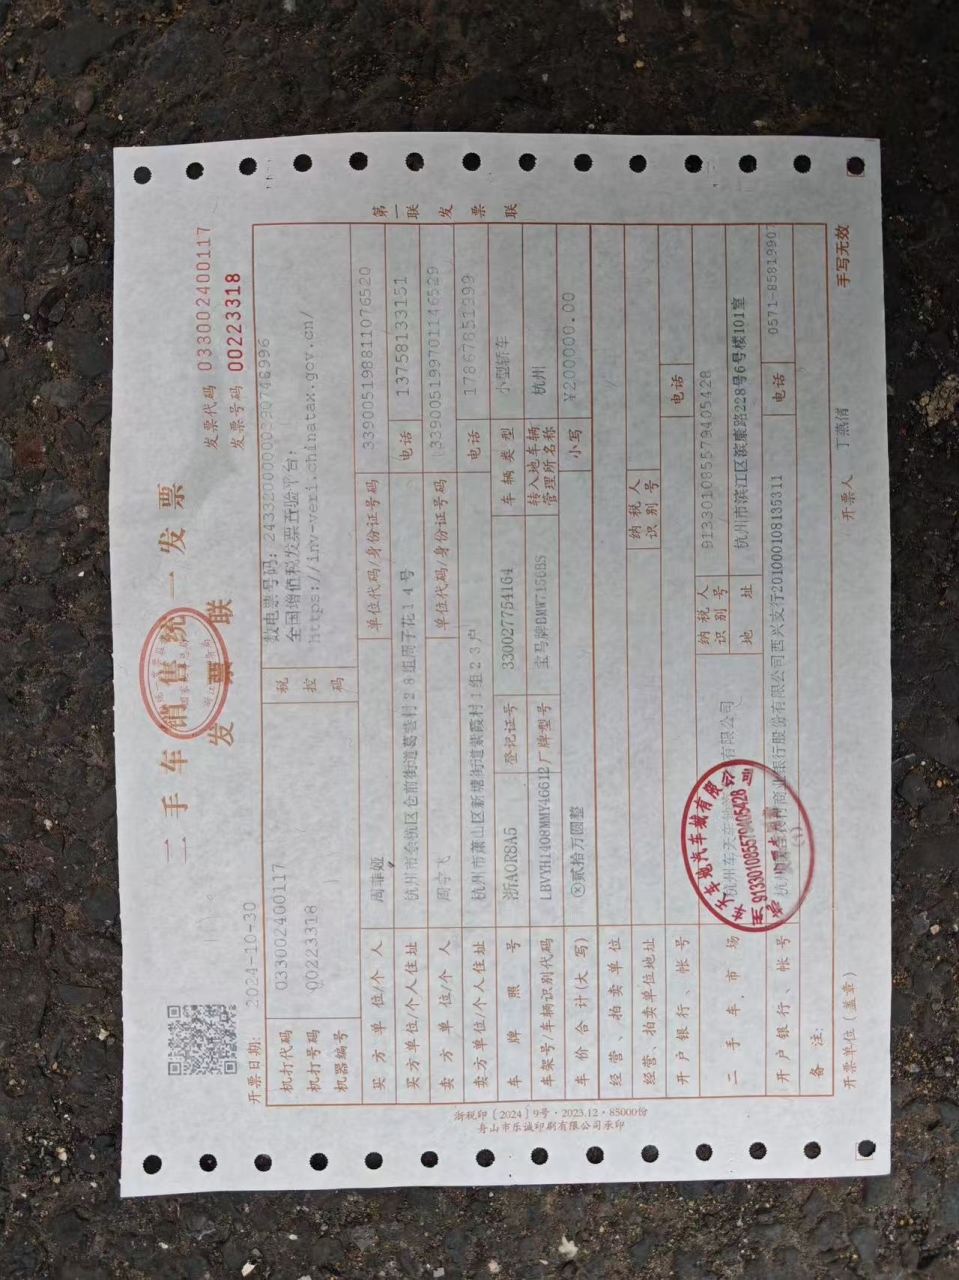 二手车销售统一发票
发票联
发票代码 033002400117
发票号码 00223318
开票日期: 2024-10-30
数电票号码: 24332000000390746996
全国增值税发票查验平台:
https://inv-veri.chinatax.gov.cn/
机打代码 033002400117
机打号码 00223318
机器编号
税控码
买方单位/个人 周菲娅 单位代码/身份证号码 339005198811076520
买方单位/个人住址 杭州市余杭区仓前街道葛巷村28组周子花14号 电话 13758133151
卖方单位/个人 周宇飞 单位代码/身份证号码 339005199701146529
卖方单位/个人住址 杭州市萧山区新塘街道紫霞村1组23户 电话 17867851999
车牌照号 浙A0R8A5 登记证号 330027754164 车辆类型 小型轿车
车架号/车辆识别代码 LBVYH1408MMY46612 厂牌型号 宝马牌BMW7150BS 转入地车辆管理所名称 杭州
车价合计(大写) ⊗贰拾万圆整 小写 ¥200000.00
经营、拍卖单位
经营、拍卖单位地址 纳税人识别号
开户银行、帐号 电话
二手车市场 杭州车天车地 有限公司 纳税人识别号 91330108557940542B
地址 杭州市滨江区滨康路228号6号楼101室
开户银行、帐号 杭州 村商业银行股份有限公司西兴支行201000108135311 电话 0571-85819907
备注:
开票单位(盖章) 开票人 丁燕俏 手写无效
第一联 发票联
浙税印〔2024〕9号·2023.12·85000份
舟山市乐诚印刷有限公司承印
91330108557940542B